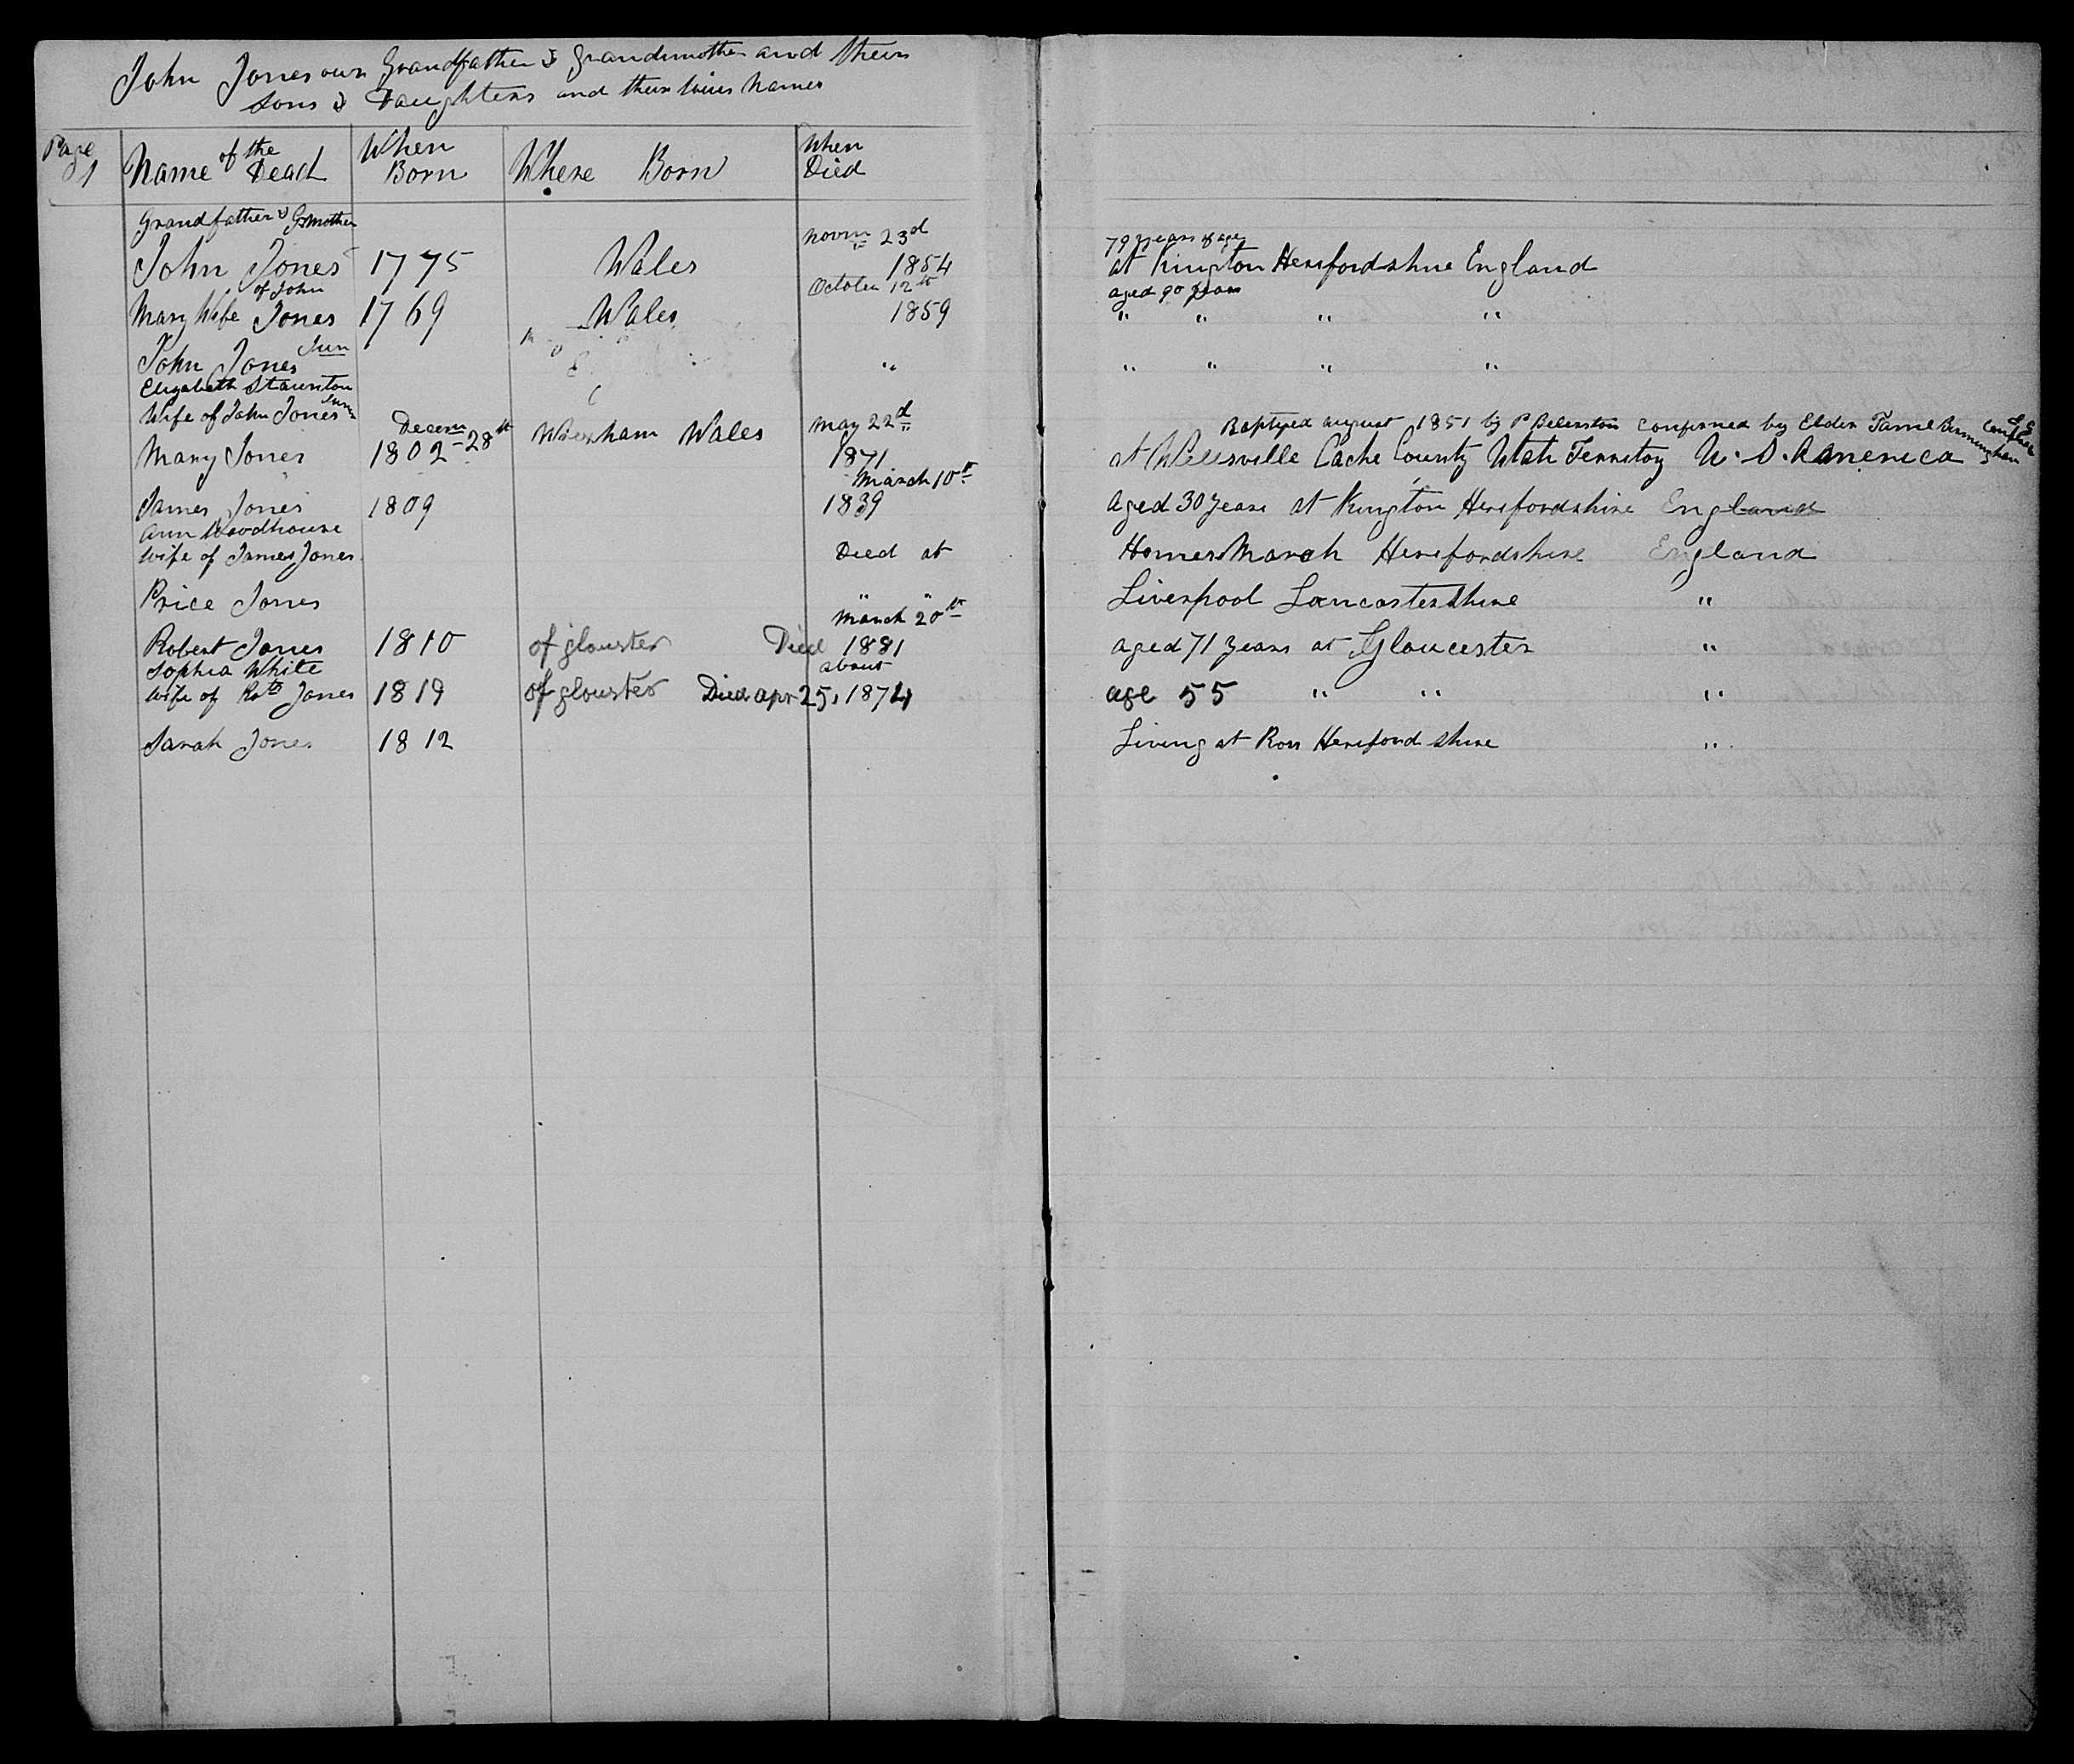 John Jones our Grandfather & Grandmother and their
sons & Daughters and their wives Names
Page 1
Name of the Dead
When Born
Where Born
When Died
Grandfather & Gr Mother
John Jones 1775 Wales Novm 23d 1854 79 years of age at Kington Herefordshire England
Mary Wife of John Jones 1769 Wales October 12th 1859 aged 90 years " " " "
John Jones Jun " " " " "
Elizabeth Staunton
Wife of John Jones Jun
Baptized august 1851 by P confirmed by Elder Birmingham
Mary Jones Decem 28th 1802 Wrexham Wales May 22d 1871 at Wellsville Cache County Utah Territory U. S. America
James Jones 1809 March 10th 1839 aged 30 years at Kington Herefordshire England
Ann Woodhouse
wife of James Jones Died at Homer March Herefordshire England
Price Jones " " Liverpool Lancastershire "
Robert Jones 1810 of glouster Died March 20th 1881 aged 71 years at Gloucester "
Sophia White
wife of Robt Jones 1819 of glouster Died apr 25, 1874 about age 55 " " "
Sarah Jones 1812 Living at Ross Hereford shire "